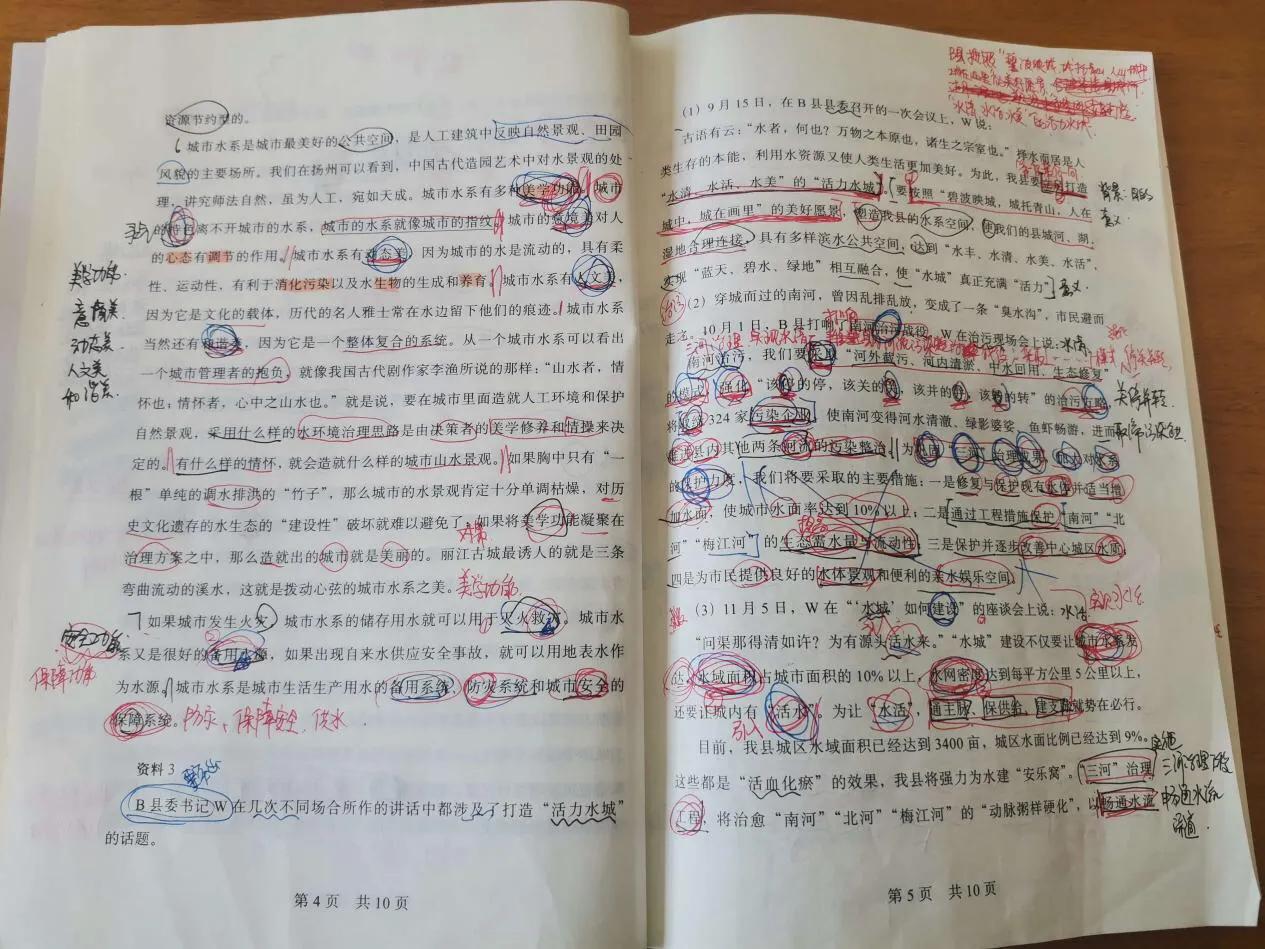 资源节约型的。
城市水系是城市最美好的公共空间，是人工建筑中反映自然景观、田园
风貌的主要场所。我们在扬州可以看到，中国古代造园艺术中对水景观的处
理，讲究师法自然，虽为人工，宛如天成。城市水系有多种美学功能。城市
的特色离不开城市的水系，城市的水系就像城市的指纹。城市的意境美对人
的心态有调节的作用。城市水系有动态美，因为城市的水是流动的，具有柔
性、运动性，有利于消化污染以及水生物的生成和养育。城市水系有人文美，
因为它是文化的载体，历代的名人雅士常在水边留下他们的痕迹。城市水系
当然还有和谐美，因为它是一个整体复合的系统。从一个城市水系可以看出
一个城市管理者的抱负，就像我国古代剧作家李渔所说的那样：“山水者，情
怀也；情怀者，心中之山水也。”就是说，要在城市里面造就人工环境和保护
自然景观，采用什么样的水环境治理思路是由决策者的美学修养和情操来决
定的。有什么样的情怀，就会造就什么样的城市山水景观。如果胸中只有“一
根”单纯的调水排洪的“竹子”，那么城市的水景观肯定十分单调枯燥，对历
史文化遗存的水生态的“建设性”破坏就难以避免了。如果将美学功能凝聚在
治理方案之中，那么造就出的城市就是美丽的。丽江古城最诱人的就是三条
弯曲流动的溪水，这就是拨动心弦的城市水系之美。美学功能
如果城市发生火灾，城市水系的储存用水就可以用于灭火救灾。城市水
系又是很好的备用水源，如果出现自来水供应安全事故，就可以用地表水作
为水源。城市水系是城市生活生产用水的备用系统、防灾系统和城市安全的
保障系统。防灾、保障安全、供水
资料3
B县委书记W在几次不同场合所作的讲话中都涉及了打造“活力水城”
的话题。
第4页 共10页
美学功能
意境美
动态美
人文美
和谐美
安全功能
保障功能
（1）9月15日，在B县县委召开的一次会议上，W说：
古语有云：“水者，何也？万物之本原也，诸生之宗室也。”择水而居是人
类生存的本能，利用水资源又使人类生活更加美好。为此，我县要打造
“水清、水活、水美”的“活力水城”。要按照“碧波映城，城托青山，人在
城中，城在画里”的美好愿景，塑造我县的水系空间，使我们的县城河、湖、
湿地合理连接，具有多样滨水公共空间，达到“水丰、水清、水美、水活”，
实现“蓝天、碧水、绿地”相互融合，使“水城”真正充满“活力”。意义
（2）穿城而过的南河，曾因乱排乱放，变成了一条“臭水沟”，市民避而
走之。10月1日，B县打响了南河治污战役。W在治污现场会上说：水清
南河治污，我们要采取“河外截污、河内清淤、中水回用、生态修复”
的模式，强化“该停的停，该关的关，该并的并，该转的转”的治污方略，
将取缔324家污染企业，使南河变得河水清澈、绿影婆娑、鱼虾畅游，进而
推进县内其他两条河流的污染整治。为巩固“三河”治理成果，加大对水系
的保护力度，我们将要采取的主要措施：一是修复与保护现有水体并适当增
加水面，使城市水面率达到10%以上；二是通过工程措施保护“南河”“北
河”“梅江河”的生态蓄水量与流动性；三是保护并逐步改善中心城区水质；
四是为市民提供良好的水体景观和便利的亲水娱乐空间。
（3）11月5日，W在“‘水城’如何建设”的座谈会上说：水活
“问渠那得清如许？为有源头活水来。”“水城”建设不仅要让城市水系发
达，水域面积占城市面积的10%以上，水网密度达到每平方公里5公里以上，
还要让城内有“活水”。为让“水活”，通主脉、保供给、建支脉就势在必行。
目前，我县城区水域面积已经达到3400亩，城区水面比例已经达到9%。
这些都是“活血化瘀”的效果，我县将强力为水建“安乐窝”。“三河”治理
工程，将治愈“南河”“北河”“梅江河”的“动脉粥样硬化”，以畅通水流
第5页 共10页
意义
关停并转
引入
畅通水流